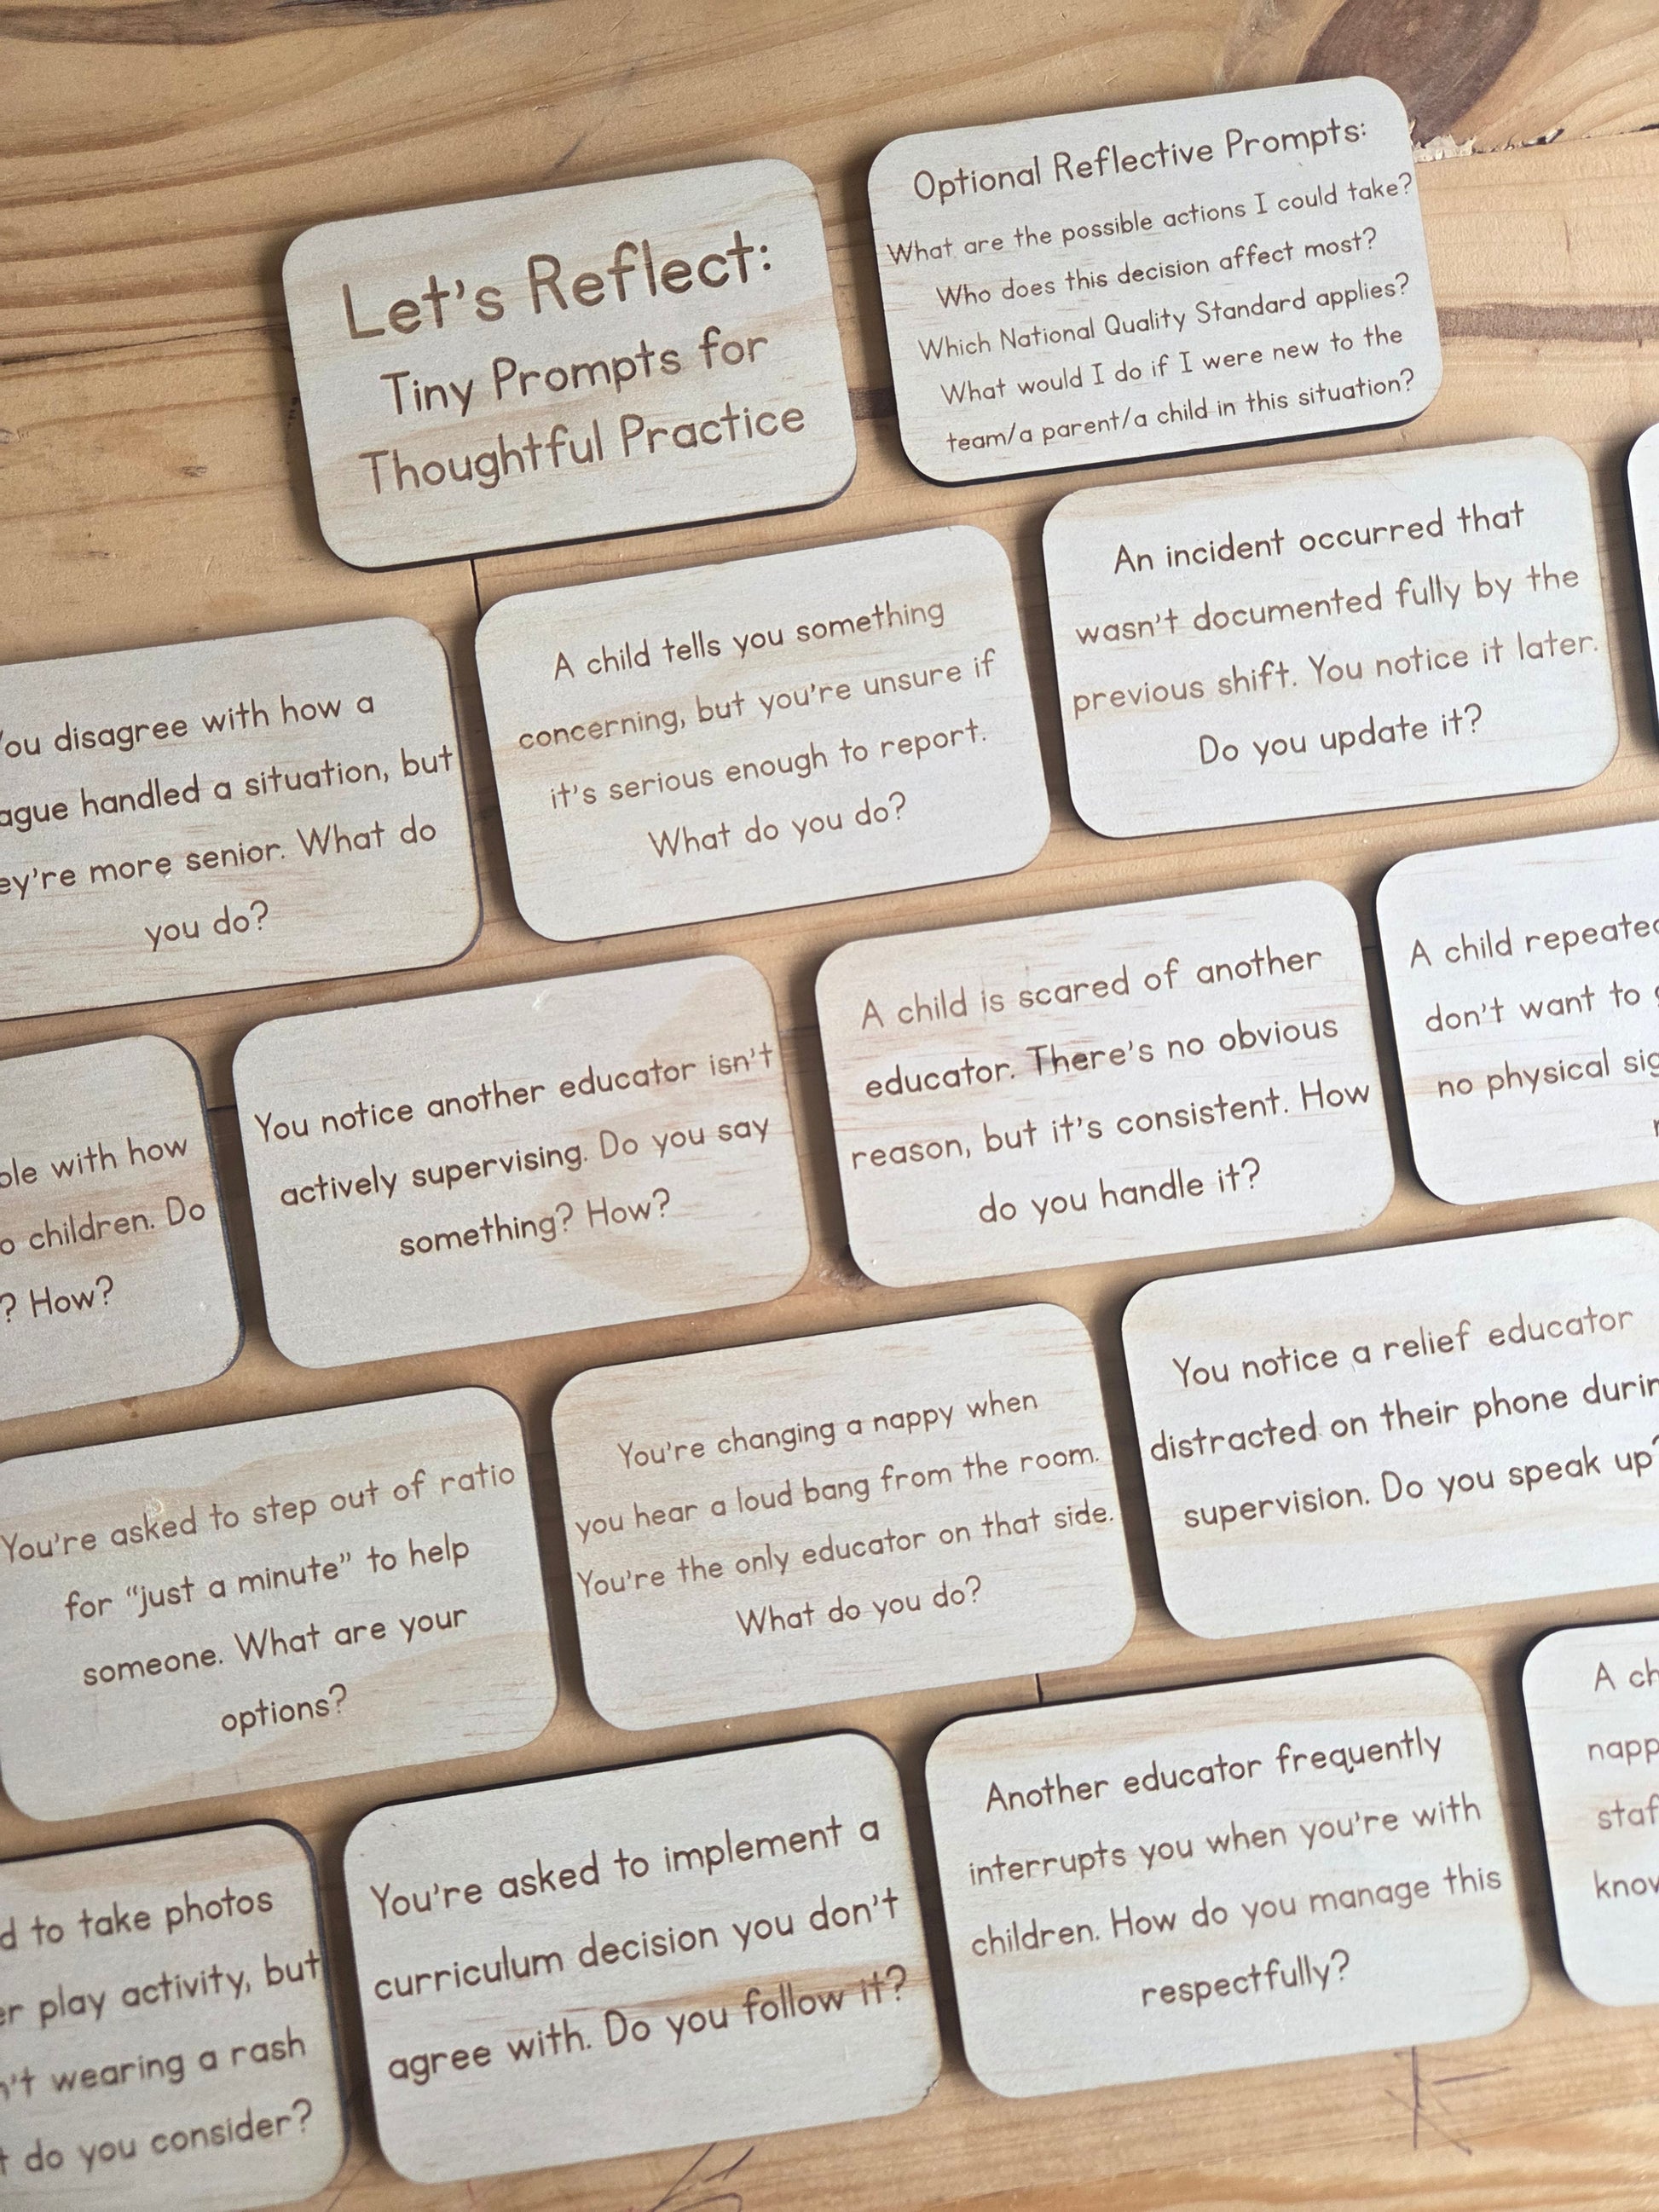 Let's Reflect:
Tiny Prompts for
Thoughtful Practice
Optional Reflective Prompts:
What are the possible actions I could take?
Who does this decision affect most?
Which National Quality Standard applies?
What would I do if I were new to the
team/a parent/a child in this situation?
You disagree with how a
handled a situation, but
more senior. What do
you do?
A child tells you something
concerning, but you're unsure if
it's serious enough to report.
What do you do?
An incident occurred that
wasn't documented fully by the
previous shift. You notice it later.
Do you update it?
with how
children. Do
? How?
You notice another educator isn't
actively supervising. Do you say
something? How?
A child is scared of another
educator. There's no obvious
reason, but it's consistent. How
do you handle it?
A child
don't want to
no physical
You're asked to step out of ratio
for “just a minute” to help
someone. What are your
options?
You're changing a nappy when
you hear a loud bang from the room.
You're the only educator on that side.
What do you do?
You notice a relief educator
distracted on their phone
supervision. Do you speak up?
to take photos
play activity, but
wearing a rash
do you consider?
You're asked to implement a
curriculum decision you don't
agree with. Do you follow it?
Another educator frequently
interrupts you when you're with
children. How do you manage this
respectfully?
A